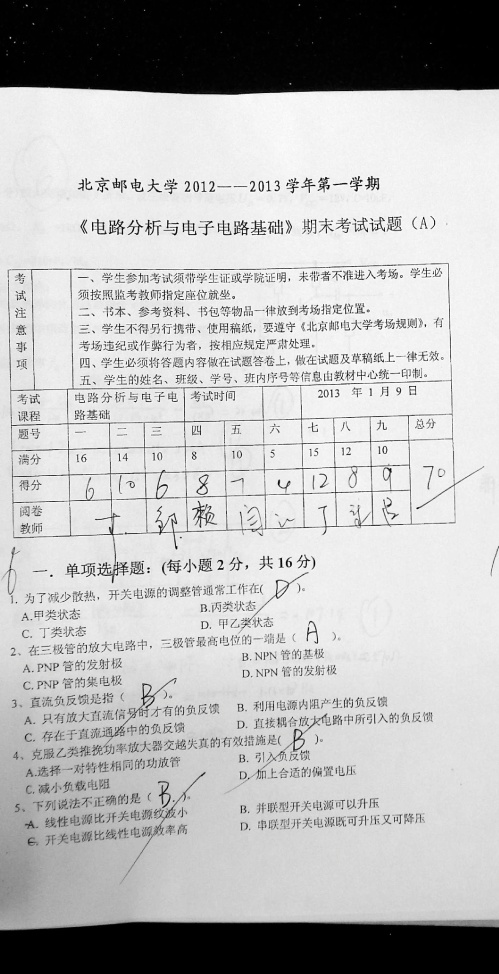 北京邮电大学 2012——2013 学年第一学期
《电路分析与电子电路基础》期末考试试题（A）
考试注意事项
一、学生参加考试须带学生证或学院证明，未带者不准进入考场。学生必
须按照监考教师指定座位就坐。
二、书本、参考资料、书包等物品一律放到考场指定位置。
三、学生不得另行携带、使用稿纸，要遵守《北京邮电大学考场规则》，有
考场违纪或作弊行为者，按相应规定严肃处理。
四、学生必须将答题内容做在试题答卷上，做在试题及草稿纸上一律无效。
五、学生的姓名、班级、学号、班内序号等信息由教材中心统一印制。
考试课程 电路分析与电子电路基础 考试时间 2013 年 1 月 9 日
题号 一 二 三 四 五 六 七 八 九 总分
满分 16 14 10 8 10 5 15 12 10
得分 6 10 6 8 7 4 12 8 9 70
阅卷教师
6
一．单项选择题：(每小题 2 分，共 16 分)
1. 为了减少散热，开关电源的调整管通常工作在( D )。
A.甲类状态 B.丙类状态
C. 丁类状态 D. 甲乙类状态
2、在三极管的放大电路中，三极管最高电位的一端是（ A ）。
A. PNP 管的发射极 B. NPN 管的基极
C. PNP 管的集电极 D. NPN 管的发射极
3、直流负反馈是指（ B ）。
A. 只有放大直流信号时才有的负反馈 B. 利用电源内阻产生的负反馈
C. 存在于直流通路中的负反馈 D. 直接耦合放大电路中所引入的负反馈
4、克服乙类推挽功率放大器交越失真的有效措施是( B )。
A.选择一对特性相同的功放管 B. 引入负反馈
C. 减小负载电阻 D. 加上合适的偏置电压
5、下列说法不正确的是（ B ）。
A. 线性电源比开关电源纹波小 B. 并联型开关电源可以升压
C. 开关电源比线性电源效率高 D. 串联型开关电源既可升压又可降压